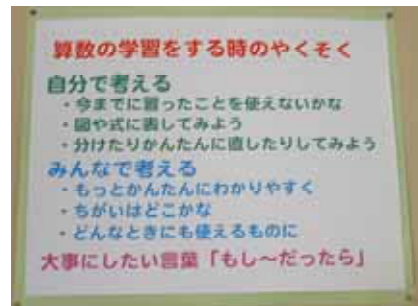 算数の学習をする時のやくそく
自分で考える
・今までに習ったことを使えないかな
・図や式に表してみよう
・分けたりかんたんに直したりしてみよう
みんなで考える
・もっとかんたんにわかりやすく
・ちがいはどこかな
・どんなときにも使えるものに
大事にしたい言葉「もし～だったら」